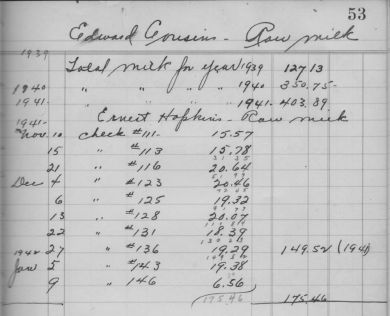 53
Edward Cousins - Raw milk
1939 Total milk for year 1939 127 13
1940 " " " " 1940 350.75
1941 " " " " 1941 403.89
1941 Ernest Hopkins - Raw milk
Nov. 10 check #111 15.57
15 " #113 15.78
21 " #116 20.64
Dec 4 " #123 20.46
6 " #125 19.32
13 " #128 20.07
22 " #131 18.39
27 " #136 19.29 149.52 (1941)
1942 Jan 5 " #143 19.38
9 " 146 6.56
175.46 175.46